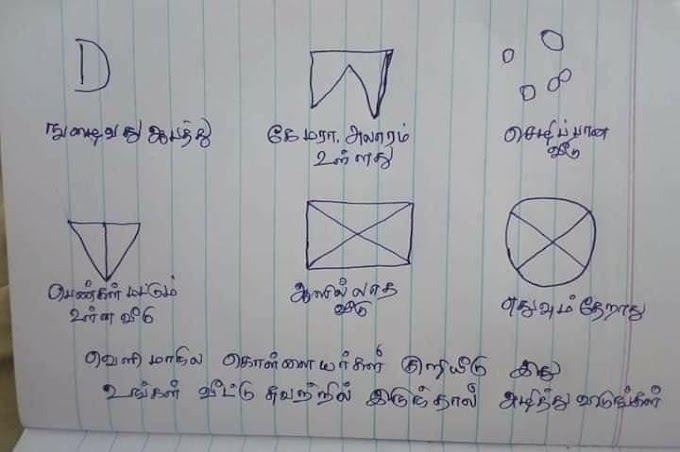 D
நுழைவது ஆபத்து
கேமரா. அலாரம்
உள்ளது
செழிப்பான
வீடு
பெண்கள் மட்டும்
உள்ள வீடு
ஆளில்லாத
வீடு
எதுவும் தேறாது
வெளி மாநில கொள்ளையர்கள் குறியீடு இது
உங்கள் வீட்டு சுவற்றில் இருந்தால் அழித்து விடுங்கள்